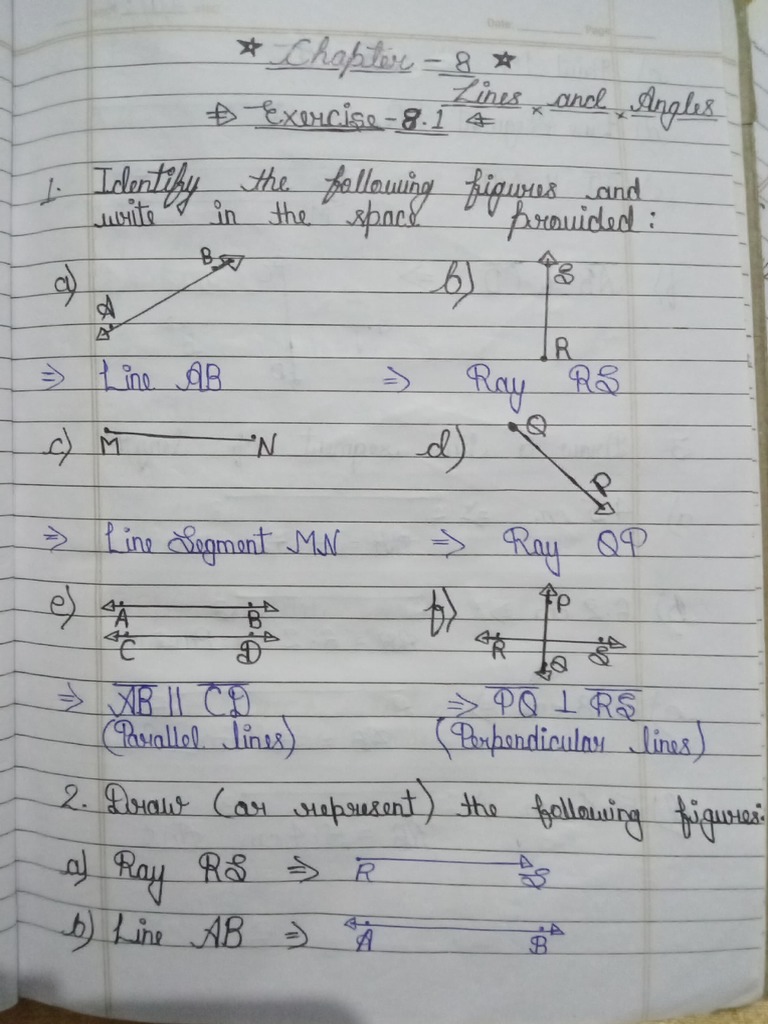 ☆ Chapter - 8 ☆
Lines and Angles
⇒ Exercise-8.1 ⇐
1. Identify the following figures and
write in the space provided:
a) A B b) S R
⇒ Line AB ⇒ Ray RS
c) M N d) Q P
⇒ Line Segment MN ⇒ Ray QP
e) A B C D f) P R Q S
⇒ A̅B̅ || C̅D̅ ⇒ P̅Q̅ ⊥ R̅S̅
(Parallel lines) (Perpendicular lines)
2. Draw (or represent) the following figures:
a) Ray RS ⇒ R S
b) Line AB ⇒ A B